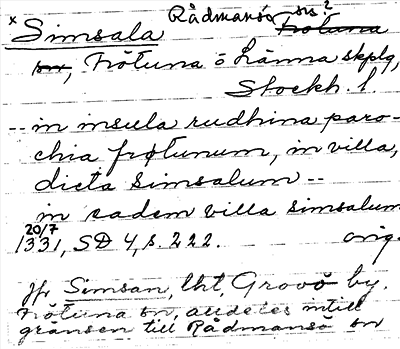 x Simsala Rådmansö sn?
Frötuna
sn, Frötuna o Länna skplg,
Stockh. l.
-- in insula rudhina paro-
chia frøtunum, in villa,
dicta Simsalum --
in eadem villa simsalum
20/7
1331, SD 4, s. 222. orig.
Jfr Simsan, lht, Grovö by,
Frötuna sn, alldeles intill
gränsen till Rådmansö sn